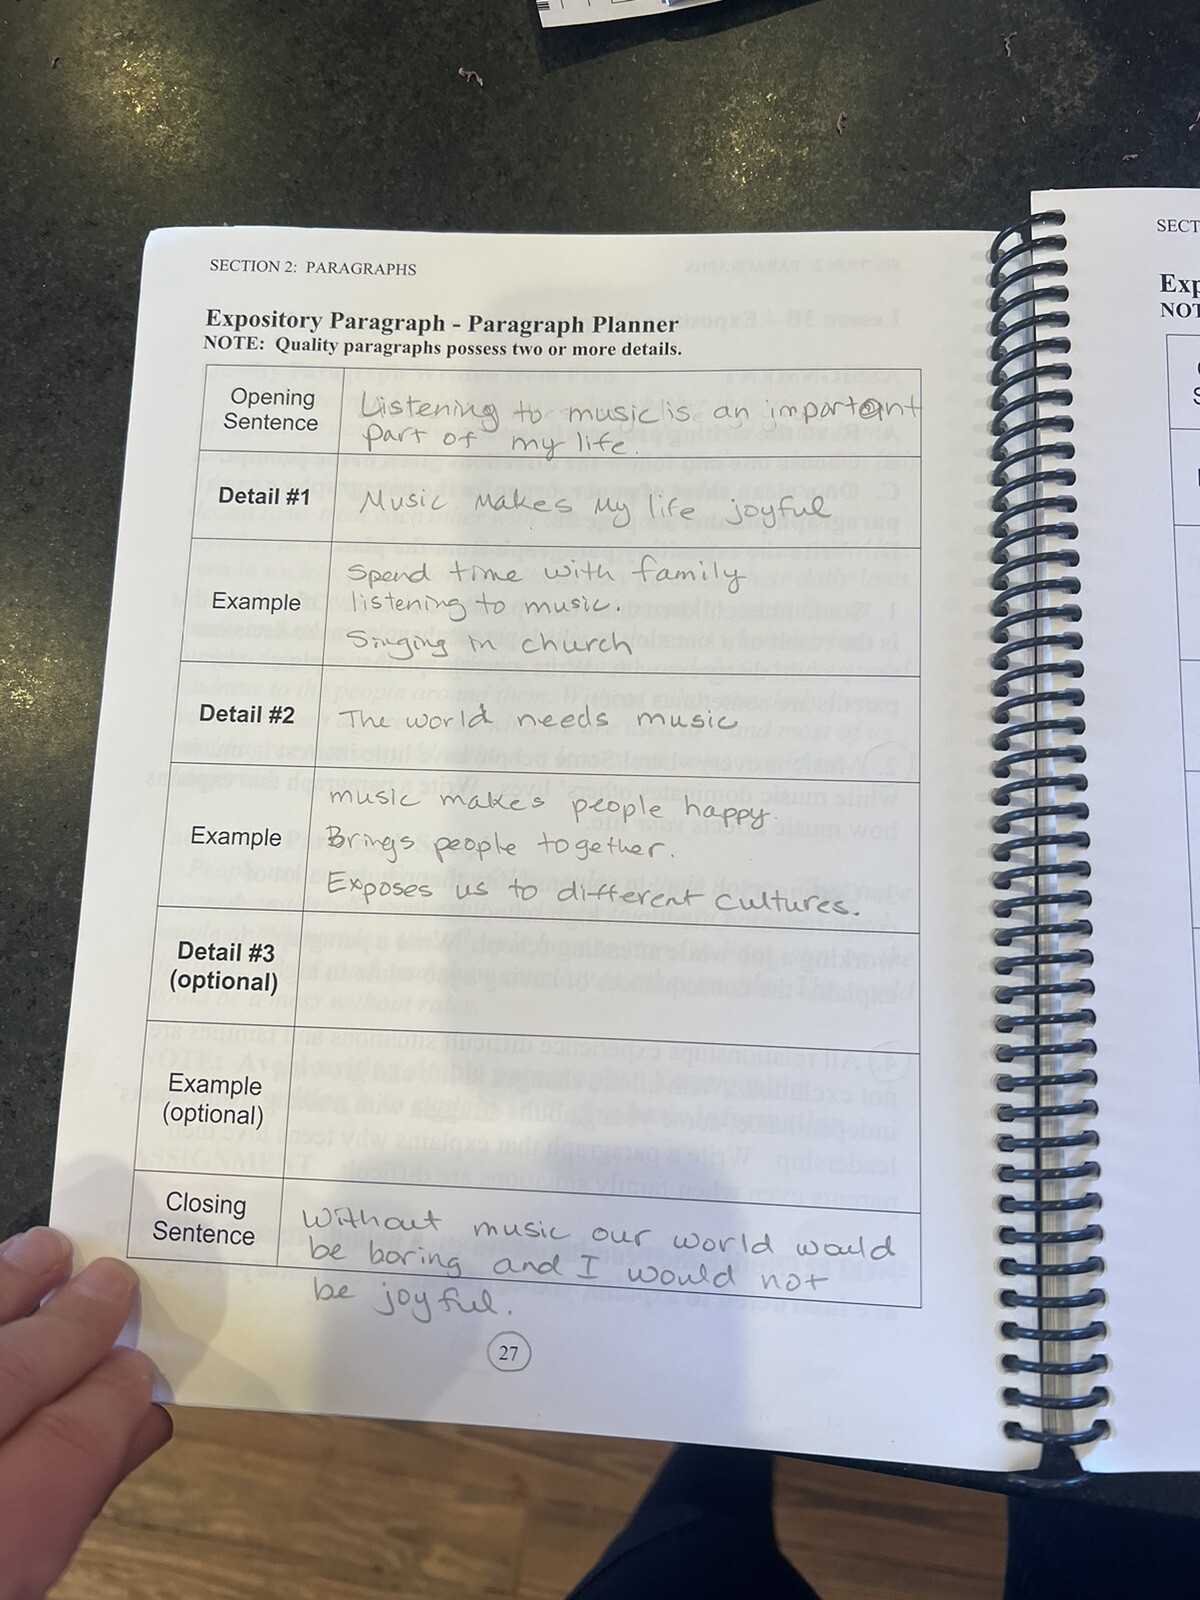 SECTION 2: PARAGRAPHS
Expository Paragraph - Paragraph Planner
NOTE: Quality paragraphs possess two or more details.
Opening
Sentence
Listening to music is an important
part of my life.
Detail #1
Music makes my life joyful
Example
Spend time with family
listening to music.
Singing in church
Detail #2
The world needs music
Example
music makes people happy.
Brings people together.
Exposes us to different cultures.
Detail #3
(optional)
Example
(optional)
Closing
Sentence
Without music our world would
be boring and I would not
be joyful.
27
SECT
Exp
NOT